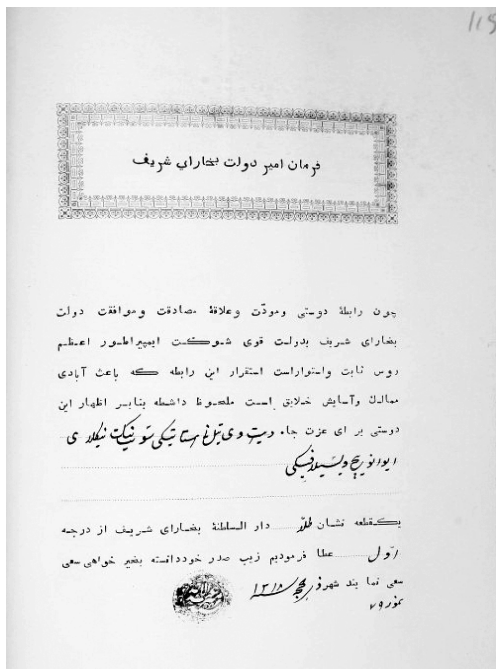 115
فرمان امیر دولت بخارای شریف
چون رابطهٔ دوستی ومودّت وعلاقهٔ مصادقت وموافقت دولت
بخارای شریف بدولت قوی شوکت ایمپیراطور اعظم
روس ثابت واستواراست استقرار این رابطه که باعث آبادی
ممالك وآسایش خلایق است ملحوظ داشطه بنابر اظهار این
دوستی برای عزت جاه
ایوانویچ
یکقطعه نشان طلا دار السلطنهٔ بخارای شریف از درجه
اوّل عطا فرمودیم زیب صدر خوددانسته بخیر خواهی سعی
سعی نمایند شهر ۱۳۱۸